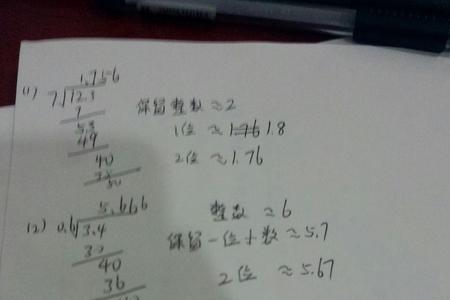 1.756
(1) 7√12.3
保留整数≈2
7
53
49
1位 ≈1.8
40
2位 ≈1.76
5.666
(2) 0.6√3.4
整数 ≈6
30
保留一位小数≈5.7
40
36
2位 ≈5.67